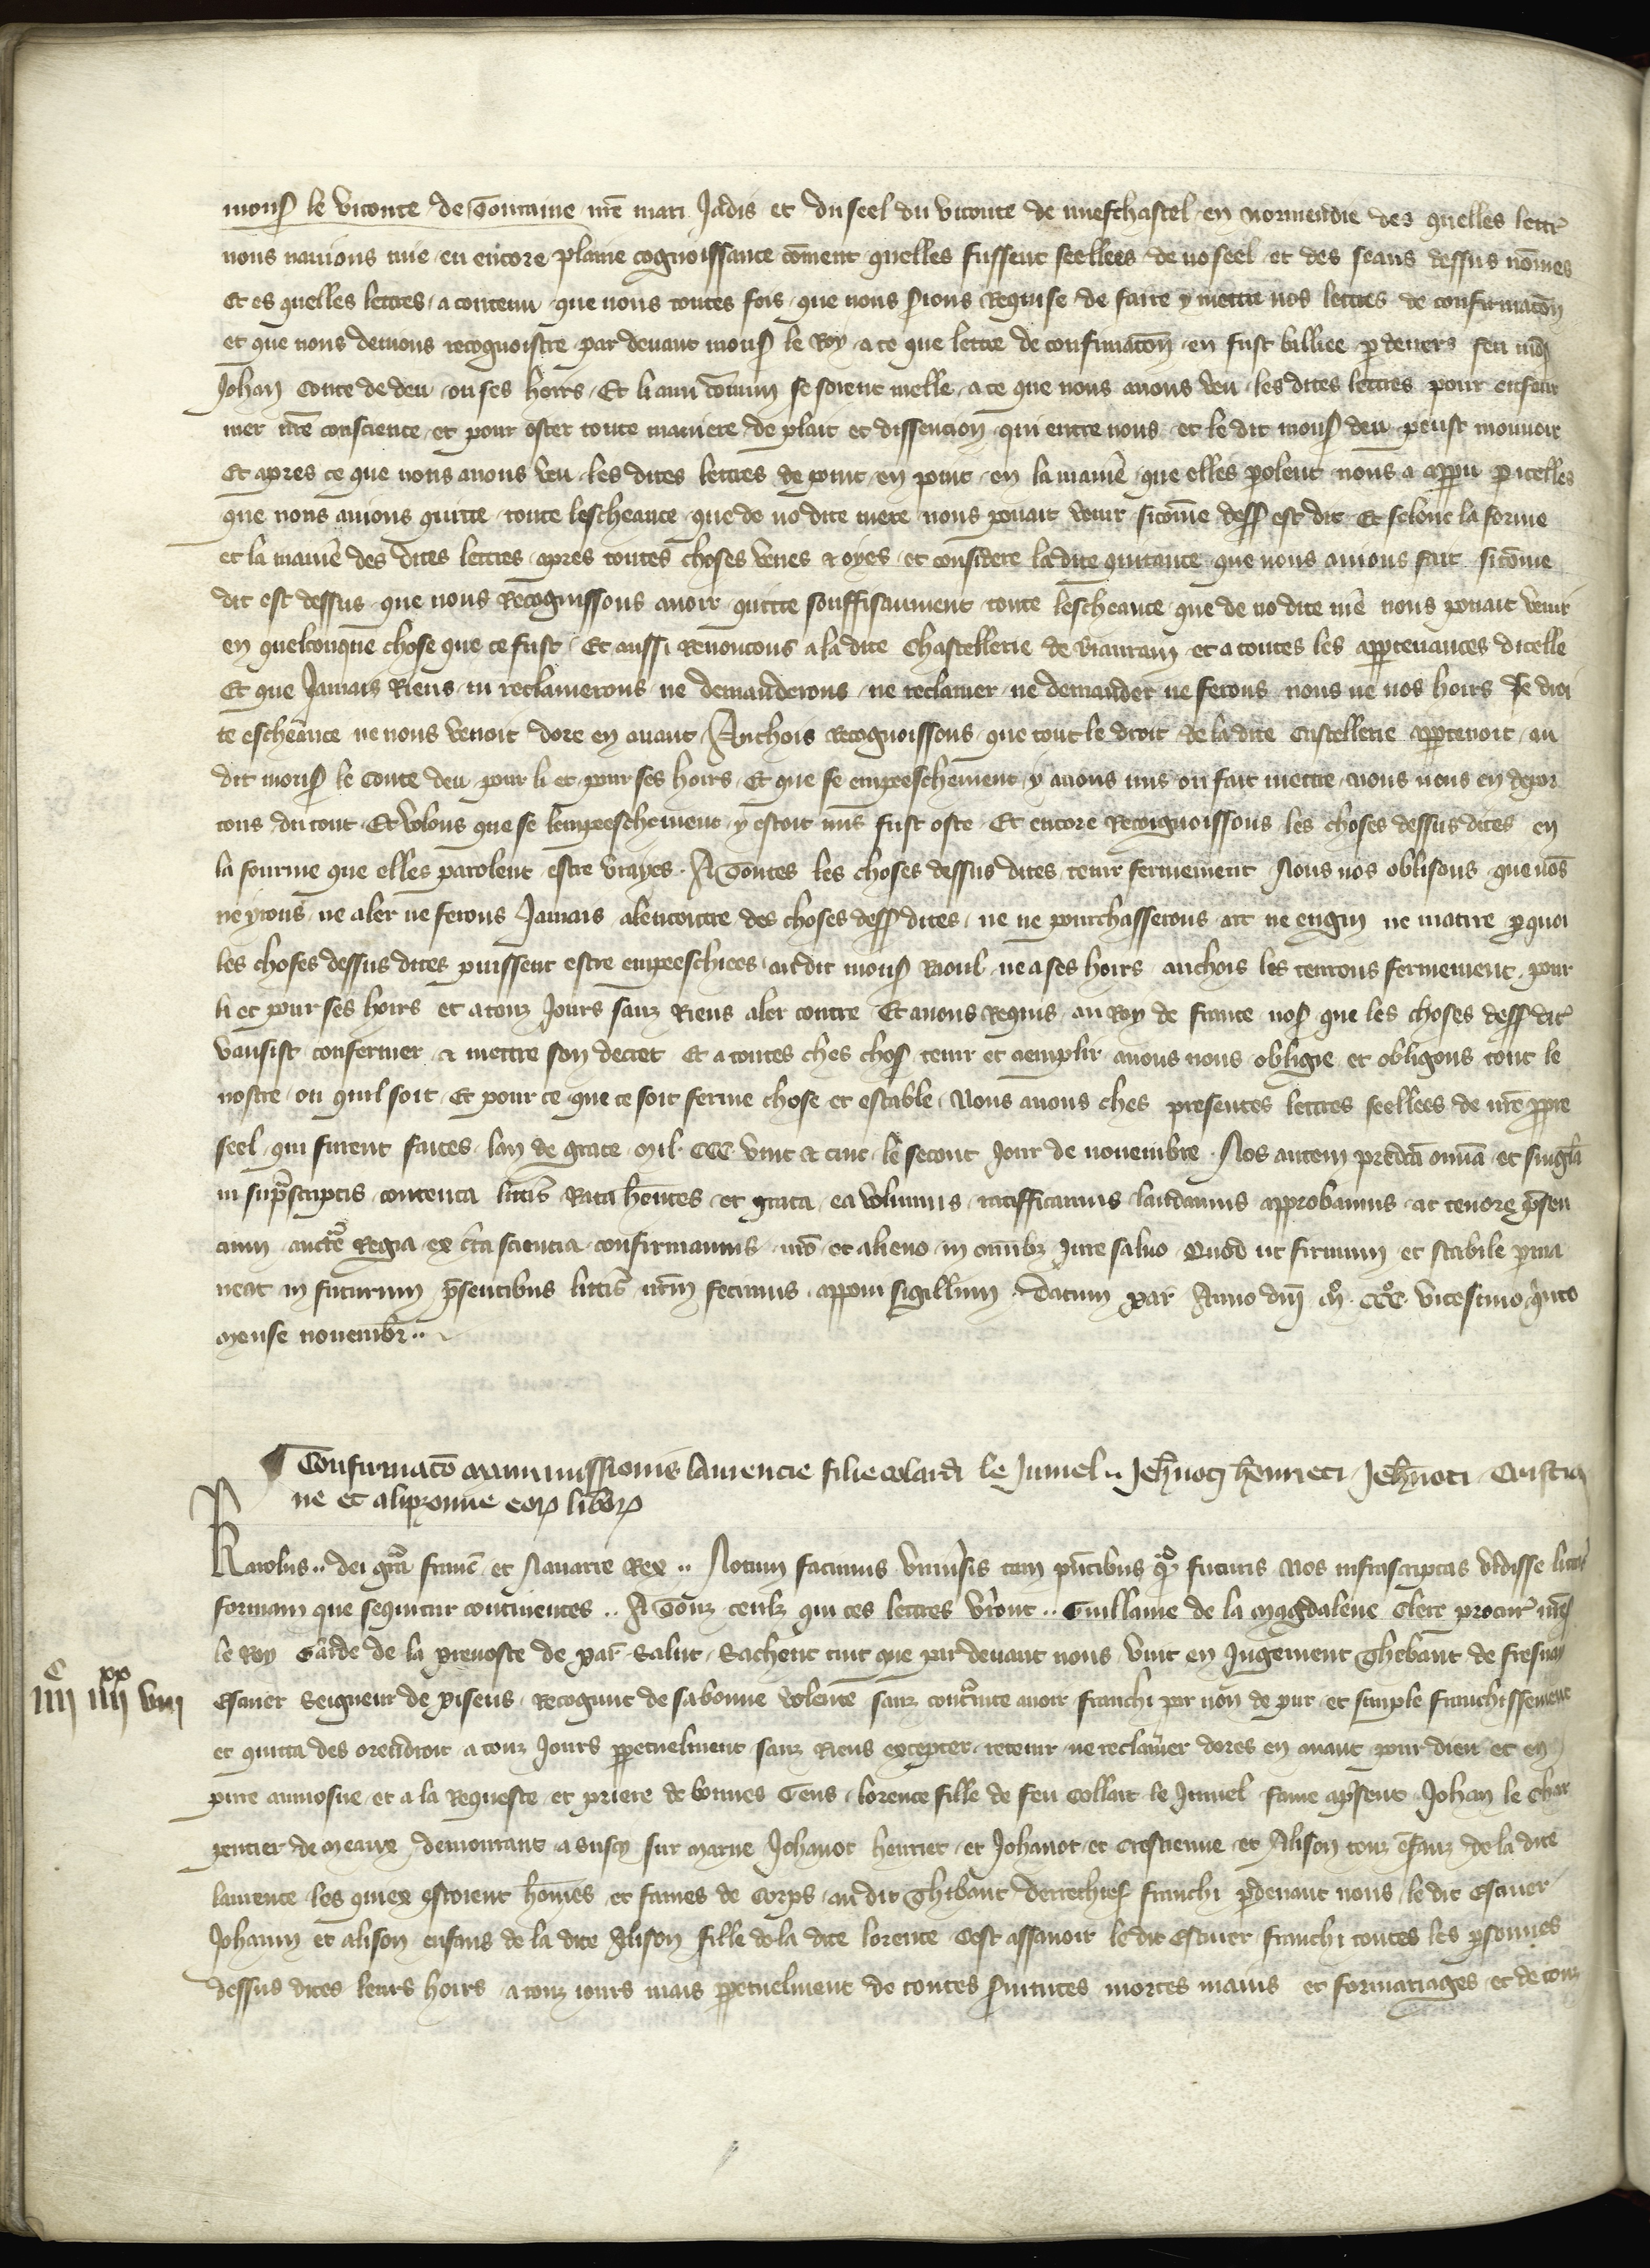 mons le viconte de Touraine nre mari Jadis et du seel du viconte de nuefchastel en normendie des quelles lettr
nous nauions mie en encore plaine cognoissance coment quelles fussent seellees de no seel et des seaus dessus nomes
Et es quelles lettres a contenu que nous toutes fois que nous serions Requise de faire y mettre nos lettres de confirmacon
et que nous deuions recognoistre par deuant mons le Roy a ce que lettre de confirmacon en fust bailliee p deuers feu mons
Johan Conte de deu ou ses hoirs Et li ami comun se soient melle a ce que nous auons veu les dites lettres pour enfour
mer nre conscience et pour oster toute maniere de plait et dissencion qui entre nous et le dit mons deu peust mouuoir
Et apres ce que nous auons veu les dites lettres de point en point en la manie que elles polent nous a appu p icelles
que nous auions quitte toute lescheance que de no dite mere nous pouait venir sicome dess est dit Et selonc la forme
et la manie des dites lettres apres toutes choses veues & oyes et considere la dite quitance que nous auions fait sicome
dit est dessus que nous Recognissons auoir quitte souffisaument toute lescheance que de no dite me nous pouait venir
en quelconque chose que ce fust Et aussi Renoncons a la dite Chastellerie de et a toutes les apptenances dicelle
Et que Jamais Riens ni reclamerons ne demanderons ne reclamer ne demander ne ferons nous ne nos hoirs Se droi
te escheance ne nous venoit dore en auant Anchois Recognoissons que tout le droit de la dite Castellerie apptenoit au
dit mons le Conte deu pour li et pour ses hoirs Et que se empeeschement y auons mis ou fait mettre nous nous en depor
tons du tout Et volons que se lempeeschement y estoit mis fust oste Et encore Recognoissons les choses dessus dites en
la fourme que elles parolent estre vrayes A Toutes les choses dessus dites tenir fermement Nous nos oblisons que nos
ne yrons ne aler ne ferons Jamais alencontre des choses dess dites ne ne pourchasserons art ne engin ne matire p quoi
les choses dessus dites puissent estre empeeschiees au dit mons Raoul ne a ses hoirs anchois les tenrons fermement pour
li et pour ses hoirs et a touz Jours sanz Riens aler contre Et auons Requis au Roy de france nos que les choses dess dit
vausist confermer & mettre son decret Et a toutes ches chos tenir et aemplir auons nous obligie et obligons tout le
nostre ou quil soit Et pour ce que ce soit ferme chose et estable Nous auons ches presentes lettres seellees de nre ppre
seel qui furent faites lan de grace Mil CCC vint & cinc le secont Jour de nouembre Nos autem predca omia et singla
in suprascriptis contenta littis Rata hentes et grata ea volumus ratifficamus laudamus approbamus ac tenore psen
cium aucte Regia ex cta sciencia confirmamus nro et alieno in omibz Jure saluo Quod ut firmum et stabile pma
neat in futurum psentibus littis nrm fecimus apponi sigillum Datum par Anno dni Mo CCCo vicesimo qnto
Mense nouembr
Confirmaco manumissionis laurencie filie colardi le Jumel Jehnoti henrici Jehnoti Cristia
ne et alipzonne eor libor
Karolus dei gra franc et Nauarre Rex Notum facimus vniusis tam pntibus q futuris Nos infrascriptas vidisse litas
formam que sequitur continentes A Touz ceulz qui ces lettres vront Guillaume de la Magdalene Clerc procur nres
le Roy Garde de la preuoste de par Salut Sachent tuit que par deuant nous vint en Jugement Thebaut de fresnay
IIIIc IIIIxx VIII
Escuier Seigneur de Recognut de sa bonne volente sanz contrainte auoir franchi par non de pur et simple franchissement
et quitta des orendroit a touz Jours ppetuelment sanz Riens excepter retenir ne reclamer dores en auant pour dieu et en
pure aumosne et a la Requeste et priere de bonnes Gens lorence fille de feu Collart le Jumel fame apsent Johan le Char
pentier de Meaux demourant a sur Marne Jehanot henriet et Johanot et Crestienne et Alison touz efanz de la dite
laurence les quiex estoient homes et fames de Corps au dit Thibaut derrechief franchi pdeuant nous le dit Escuier
Johanin et alison enfans de la dite Alison fille de la dite lorence Cest assauoir le dit Escuier franchi toutes les psonnes
dessus dites leurs hoirs a touz iours mais ppetuelment de toutes seruitutes mortes mains et formariages et de touz